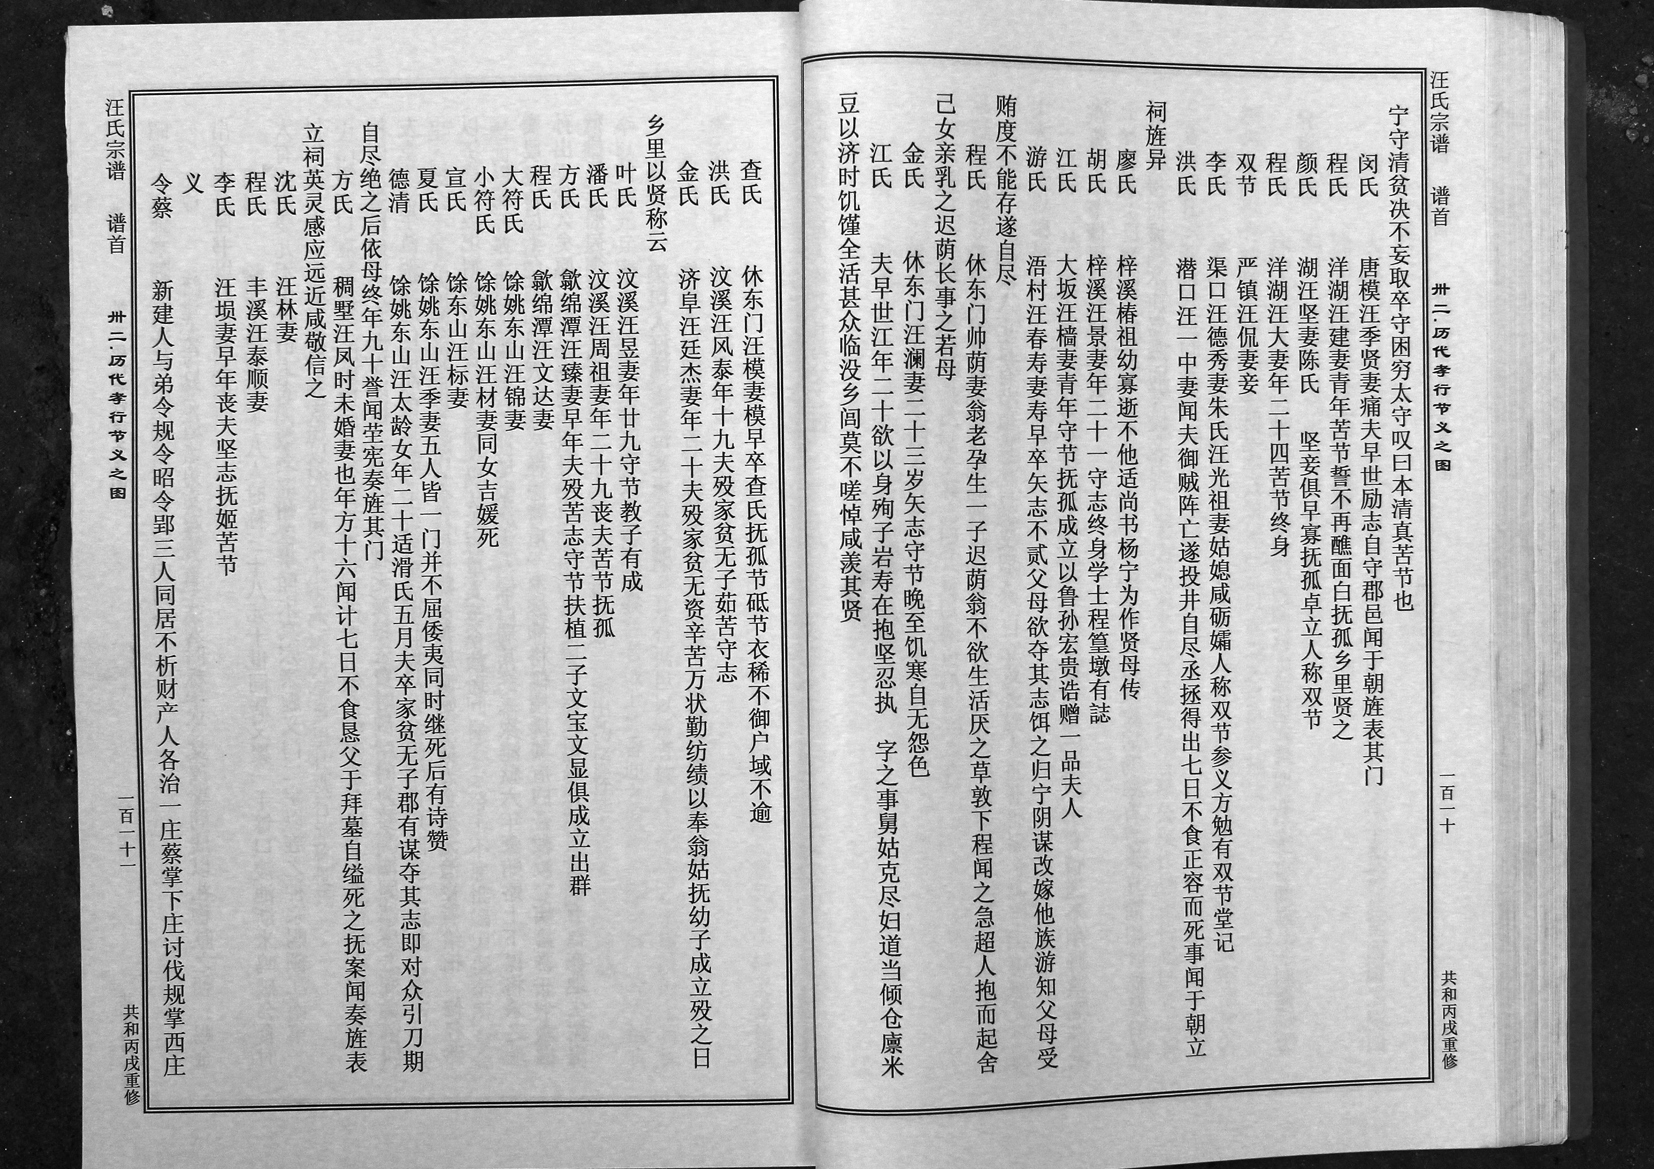 汪氏宗谱 谱首 卅二·历代孝行节义之图 一百一十 共和丙戌重修
宁守清贫决不妄取卒守困穷太守叹曰本清真苦节也
闵氏 唐模汪季贤妻痛夫早世励志自守郡邑闻于朝旌表其门
程氏 洋湖汪建妻青年苦节誓不再醮面白抚孤乡里贤之
颜氏 湖汪坚妻陈氏 坚妾俱早寡抚孤卓立人称双节
程氏 洋湖汪大妻年二十四苦节终身
双节 严镇汪侃妻妾
李氏 渠口汪德秀妻朱氏汪光祖妻姑媳咸砺孀人称双节参义方勉有双节堂记
洪氏 潜口汪一中妻闻夫御贼阵亡遂投井自尽丞拯得出七日不食正容而死事闻于朝立
祠旌异
廖氏 梓溪椿祖幼寡逝不他适尚书杨宁为作贤母传
胡氏 梓溪汪景妻年二十一守志终身学士程篁墩有誌
江氏 大坂汪樯妻青年守节抚孤成立以鲁孙宏贵诰赠一品夫人
游氏 浯村汪春寿妻寿早卒矢志不贰父母欲夺其志饵之归宁阴谋改嫁他族游知父母受
贿度不能存遂自尽
程氏 休东门帅荫妻翁老孕生一子迟荫翁不欲生活厌之草敦下程闻之急超人抱而起舍
己女亲乳之迟荫长事之若母
金氏 休东门汪澜妻二十三岁矢志守节晚至饥寒自无怨色
江氏 夫早世江年二十欲以身殉子岩寿在抱坚忍执 字之事舅姑克尽妇道当倾仓廪米
豆以济时饥馑全活甚众临没乡闾莫不嗟悼咸羡其贤
查氏 休东门汪模妻模早卒查氏抚孤节砥节衣稀不御户域不逾
洪氏 汶溪汪风泰年十九夫殁家贫无子茹苦守志
金氏 济阜汪廷杰妻年二十夫殁家贫无资辛苦万状勤纺绩以奉翁姑抚幼子成立殁之日
乡里以贤称云
叶氏 汶溪汪昱妻年廿九守节教子有成
潘氏 汶溪汪周祖妻年二十九丧夫苦节抚孤
方氏 歙绵潭汪臻妻早年夫殁苦志守节扶植二子文宝文显俱成立出群
程氏 歙绵潭汪文达妻
大符氏 馀姚东山汪锦妻
小符氏 馀姚东山汪材妻同女吉媛死
宣氏 馀东山汪标妻
夏氏 馀姚东山汪季妻五人皆一门并不屈倭夷同时继死后有诗赞
德清 馀姚东山汪太龄女年二十适滑氏五月夫卒家贫无子郡有谋夺其志即对众引刀期
自尽绝之后依母终年九十誉闻茔宪奏旌其门
方氏 稠墅汪凤时未婚妻也年方十六闻计七日不食恳父于拜墓自缢死之抚案闻奏旌表
立祠英灵感应远近咸敬信之
沈氏 汪林妻
程氏 丰溪汪泰顺妻
李氏 汪埙妻早年丧夫坚志抚姬苦节
义
令蔡 新建人与弟令规令昭令郢三人同居不析财产人各治一庄蔡掌下庄讨伐规掌西庄
汪氏宗谱 谱首 卅二·历代孝行节义之图 一百一十一 共和丙戌重修